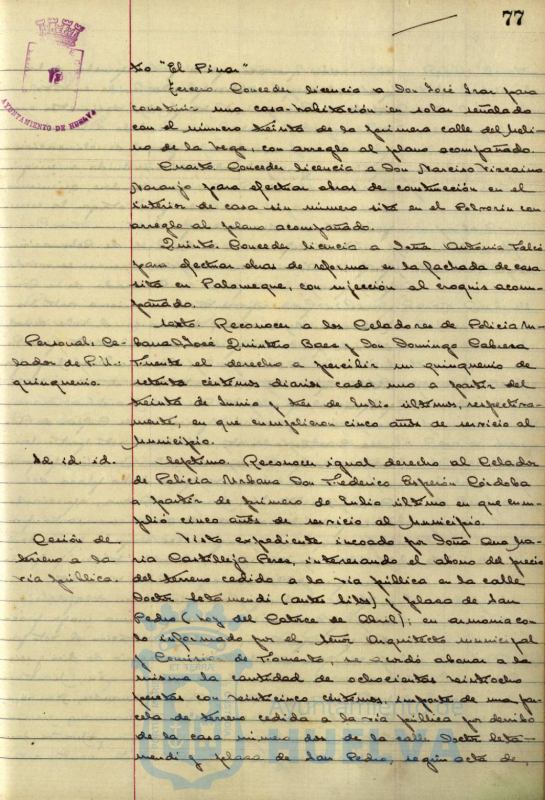 77
AYUNTAMIENTO DE HUELVA
tio "El Pinar"
Tercero. Conceder licencia a Don José para
construir una casa-habitación en solar señalado
con el número treinta de la primera calle del Moli-
no de la Vega, con arreglo al plano acompañado.
Cuarto. Conceder licencia a Don Narciso Vizcaino
Naranjo para efectuar obras de construcción en el
interior de casa sin número sita en el Polvorín con
arreglo al plano acompañado.
Quinto. Conceder licencia a Doña Antonia
para efectuar obras de reforma en la fachada de casa
sita en Palomeque, con sujeción al croquis acom-
pañado.
Personal: Ce-
lador de P. U.:
quinquenio.
Sexto. Reconocer a los Celadores de Policía Ur-
bana D. José Quintero Baez y Don Domingo Cabrera
el derecho a percibir un quinquenio de
setenta céntimos diarios cada uno a partir del
treinta de Junio y tres de Julio últimos, respectiva-
mente, en que cumplieron cinco años de servicio al
Municipio.
Id id id.
Septimo. Reconocer igual derecho al Celador
de Policía Urbana Don Frederico Córdoba
a partir de primero de Julio último en que cum-
plió cinco años de servicio al Municipio.
Cesión de
terreno a la
vía pública.
Visto expediente incoado por Doña Ana Ma-
ria Castilleja Perez, interesando el abono del precio
del terreno cedido a la vía pública en la calle
Doctor Letamendi (antes Silos) y plaza de San
Pedro (hoy del Catorce de Abril); en armonía con
lo informado por el Señor Arquitecto municipal
y Comisión de Fomento, se acordó abonar a la
misma la cantidad de ochocientas veintiocho
pesetas con veinticinco céntimos, importe de una par-
cela de terreno cedida a la vía pública por derribo
de la casa número dos de la calle Doctor Leta-
mendi y plaza de San Pedro, según acta de,
Ayuntamiento de
HUELVA